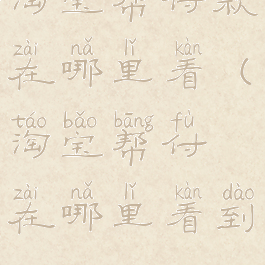 淘宝帮付款
zài nǎ lǐ kàn
在哪里看(
táo bǎo bāng fù
淘宝帮付
zài nǎ lǐ kàn dào
在哪里看到